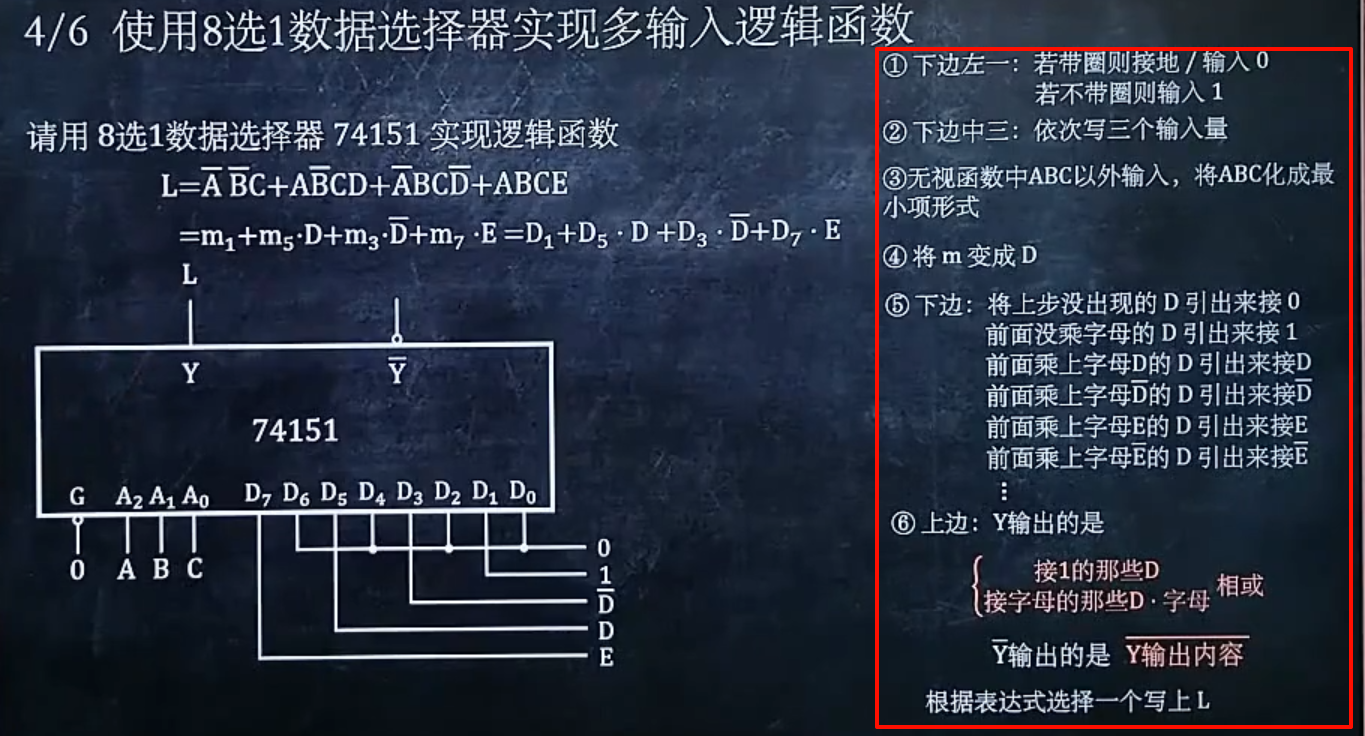 4/6 使用8选1数据选择器实现多输入逻辑函数
请用 8选1数据选择器 74151 实现逻辑函数
L=A̅ B̅C+AB̅CD+A̅BCD̅+ABCE
=m₁+m₅·D+m₃·D̅+m₇ ·E =D₁+D₅ · D +D₃ · D̅+D₇ · E
L
Y Y̅
74151
G A₂ A₁ A₀ D₇ D₆ D₅ D₄ D₃ D₂ D₁ D₀
0 A B C
0
1
D̅
D
E
① 下边左一：若带圈则接地 / 输入 0
若不带圈则输入 1
② 下边中三：依次写三个输入量
③无视函数中ABC以外输入，将ABC化成最
小项形式
④ 将 m 变成 D
⑤ 下边：将上步没出现的 D 引出来接 0
前面没乘字母的 D 引出来接 1
前面乘上字母D的 D 引出来接D
前面乘上字母D̅的 D 引出来接D̅
前面乘上字母E的 D 引出来接E
前面乘上字母E̅的 D 引出来接E̅
⋮
⑥ 上边：Y输出的是
接1的那些D
接字母的那些D · 字母 相或
Y̅输出的是 Y̅输̅出̅内̅容̅
根据表达式选择一个写上 L